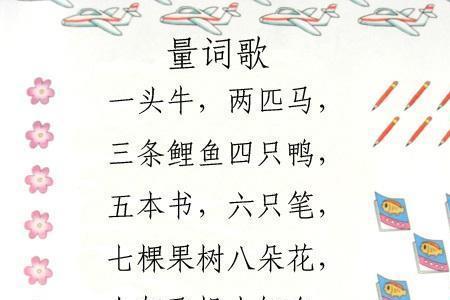 量词歌
一头牛，两匹马，
三条鲤鱼四只鸭，
五本书，六只笔，
七棵果树八朵花，